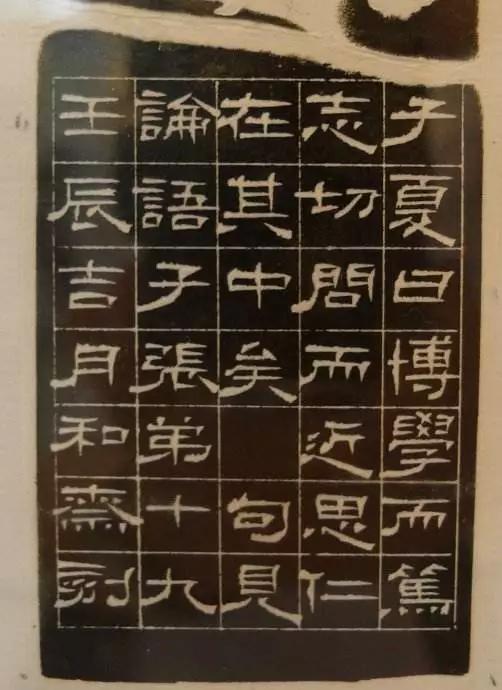 子夏曰博學而篤
志切問而近思仁
在其中矣 句見
論語子張弟十九
壬辰吉月和齋刻